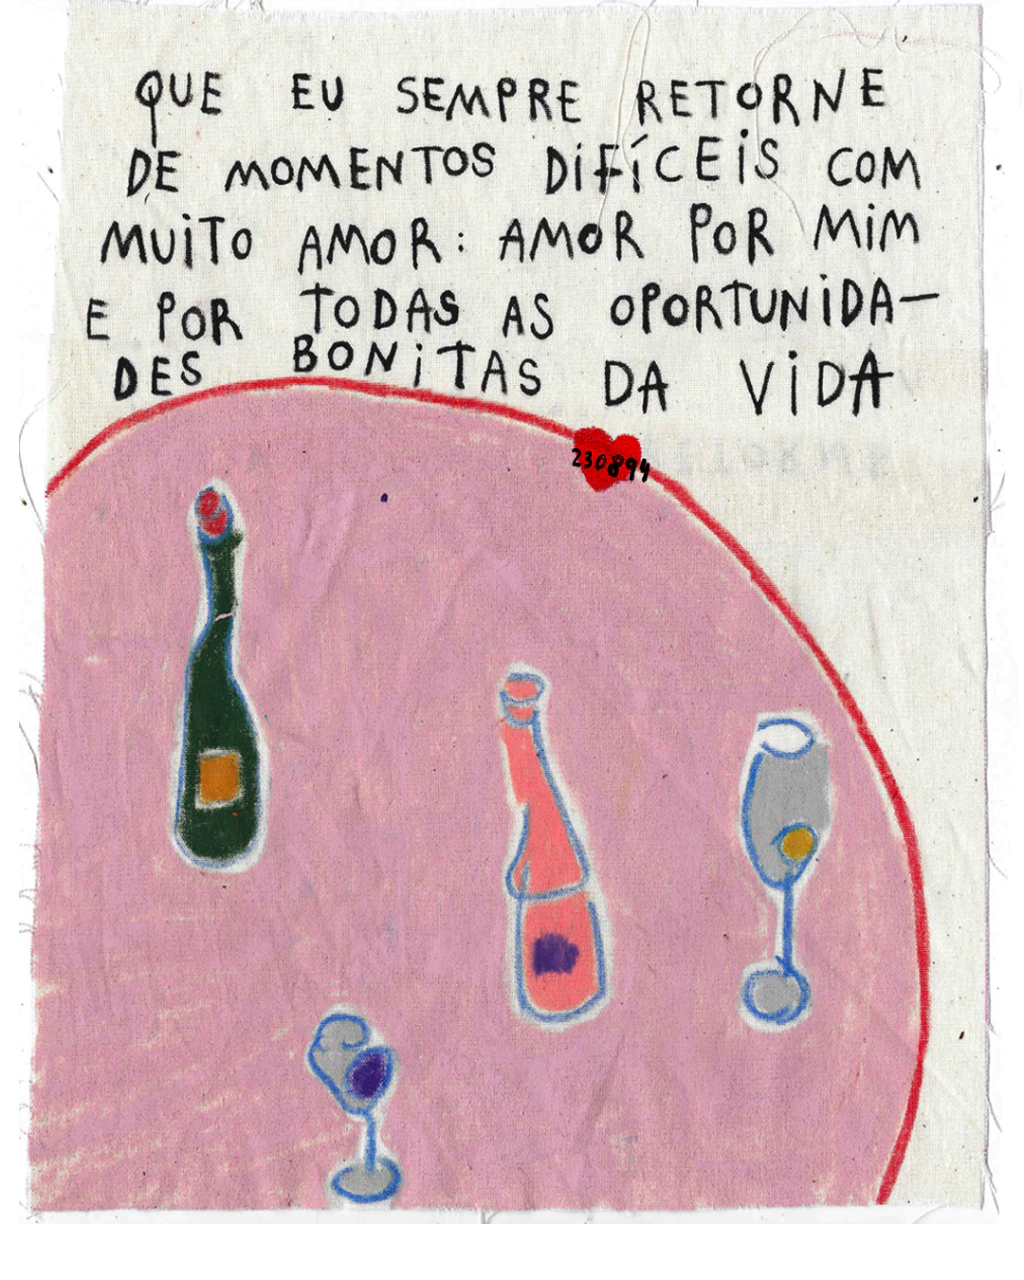 QUE EU SEMPRE RETORNE
DE MOMENTOS DIFÍCEIS COM
MUITO AMOR: AMOR POR MIM
E POR TODAS AS OPORTUNIDA-
DES BONITAS DA VIDA
230894